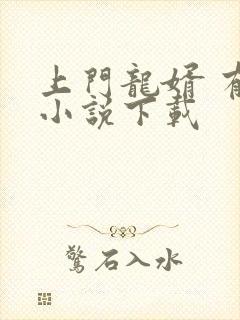 上門龍婿
小說下載
驚石入水